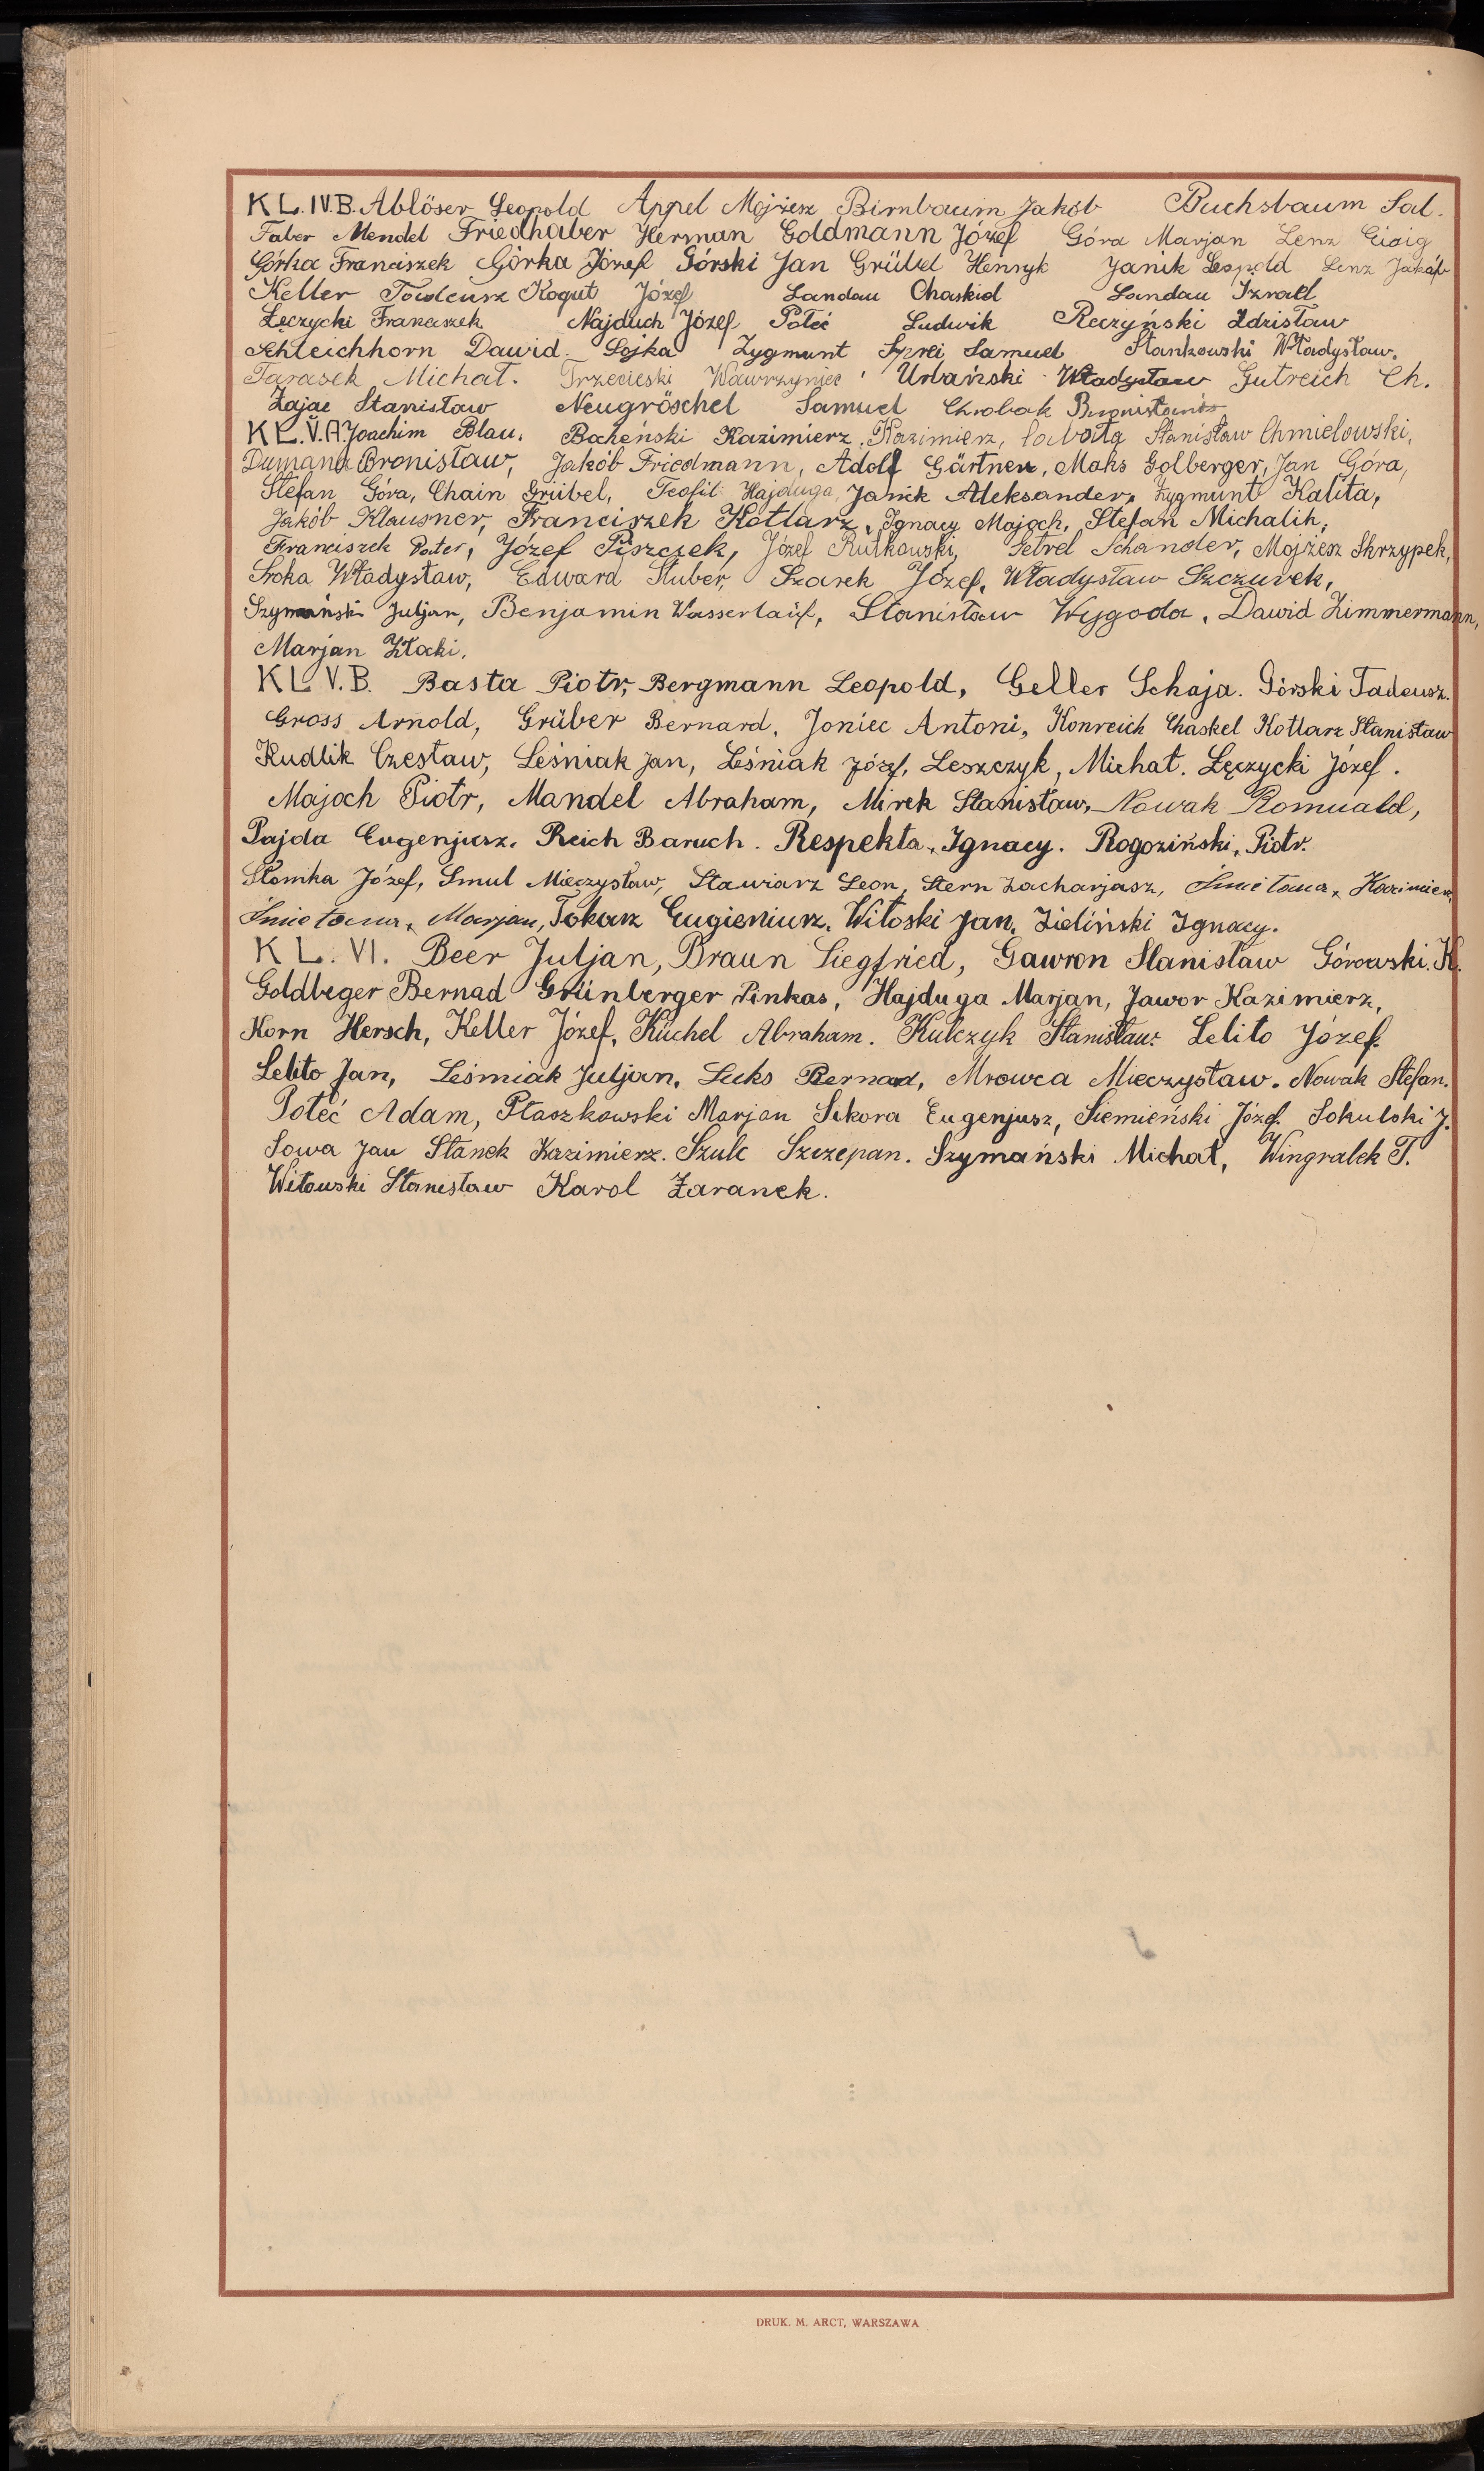 KL.IV.B. Ablöser Leopold Appel Mojżesz Birnbaum Jakób Buchsbaum Sal.
Faber Mendel Friedhaber Herman Goldmann Józef Góra Marjan Lenz
Górka Franciszek Górka Józef Górski Jan Grübel Henryk Janik Leopold Lenz Jakób
Keller Tadeusz Kogut Józef Landau Chaskiel Landau Izrael
Łęczycki Franciszek Najduch Józef Połeć Ludwik Reczyński Zdzisław
Schleichhorn Dawid Sojka Zygmunt Samuel Stankowski Władysław.
Tarasek Michał. Trzecieski Wawrzyniec Urbański Władysław Gutreich Ch.
Zając Stanisław Neugröschel Samuel Chrobak Bronisław
KL.V.A. Joachim Blau, Bocheński Kazimierz, Kazimierz, Stanisław Chmielowski,
Dumana Bronisław, Jakób Friedmann, Adolf Gärtner, Maks Golberger, Jan Góra,
Stefan Góra, Chain Grübel, Teofil Hajduga, Janik Aleksander, Zygmunt Kalita,
Jakób Klausner, Franciszek Kotlarz, Ignacy Majoch, Stefan Michalik,
Franciszek Józef Piszczek, Józef Rutkowski, Schander, Mojżesz Skrzypek,
Sroka Władysław, Edward Stuber, Szarek Józef, Władysław Szczurek,
Szymański Juljan, Benjamin Wasserlauf, Stanisław Wygoda, Dawid Zimmermann,
Marjan Złocki.
KL V.B. Basta Piotr, Bergmann Leopold, Geller Schaja. Górski Tadeusz.
Gross Arnold, Grüber Bernard, Joniec Antoni, Konreich Chaskel Kotlarz Stanisław
Kudlik Czesław, Leśniak Jan, Leśniak Józef, Leszczyk, Michał. Łęczycki Józef.
Majoch Piotr, Mandel Abraham, Mirek Stanisław, Nowak Romuald,
Pajda Eugenjusz. Reich Baruch. Respekta, Ignacy. Rogoziński, Piotr.
Słomka Józef, Smul Mieczysław, Stawiarz Leon, Stern Zacharjasz, Śmietana, Kazimierz,
Śmietana, Marjan, Tokarz Eugieniusz, Witoski Jan, Zieliński Ignacy.
KL. VI. Beer Juljan, Braun Siegfried, Gawron Stanisław Górowski K.
Goldbeger Bernad Grünberger Pinkas, Hajduga Marjan, Jawor Kazimierz,
Korn Hersch, Keller Józef, Küchel Abraham. Kulczyk Stanisław. Lelito Józef.
Lelito Jan, Leśniak Juljan, Luks Bernad, Mrowca Mieczysław. Nowak Stefan.
Połeć Adam, Ptaszkowski Marjan Sikora Eugenjusz, Siemieński Józef. Sokulski J.
Sowa Jan Stanek Kazimierz. Szulc Szczepan. Szymański Michał, Wingralek T.
Witowski Stanisław Karol Żaranek.
DRUK. M. ARCT, WARSZAWA